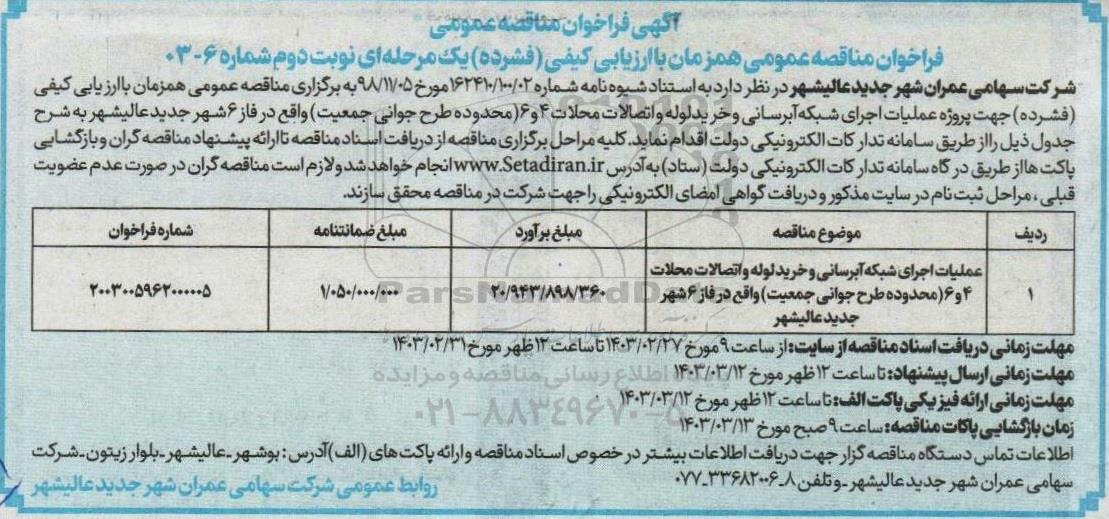 آگهی فراخوان مناقصه عمومی
فراخوان مناقصه عمومی همزمان با ارزیابی کیفی (فشرده) یک مرحله‌ای نوبت دوم شماره ۶-۰۳
شرکت سهامی عمران شهر جدید عالیشهر در نظر دارد به استناد شیوه نامه شماره ۱۶۲۴۱۰/۱۰۰/۰۲ مورخ ۹۸/۱۱/۰۵ به برگزاری مناقصه عمومی همزمان با ارزیابی کیفی
(فشرده) جهت پروژه عملیات اجرای شبکه آبرسانی و خرید لوله و اتصالات محلات ۴ و ۶ (محدوده طرح جوانی جمعیت) واقع در فاز ۶ شهر جدید عالیشهر به شرح
جدول ذیل را از طریق سامانه تدارکات الکترونیکی دولت اقدام نماید. کلیه مراحل برگزاری مناقصه از دریافت اسناد مناقصه تا ارائه پیشنهاد مناقصه گران و بازگشایی
پاکت ها از طریق درگاه سامانه تدارکات الکترونیکی دولت (ستاد) به آدرس www.Setadiran.ir انجام خواهد شد و لازم است مناقصه گران در صورت عدم عضویت
قبلی ، مراحل ثبت نام در سایت مذکور و دریافت گواهی امضای الکترونیکی را جهت شرکت در مناقصه محقق سازند.
ردیف موضوع مناقصه مبلغ برآورد مبلغ ضمانتنامه شماره فراخوان
عملیات اجرای شبکه آبرسانی و خرید لوله و اتصالات محلات
۱ ۴ و ۶ (محدوده طرح جوانی جمعیت) واقع در فاز ۶ شهر ۲۰/۹۴۳/۸۹۸/۳۶۰ ۱/۰۵۰/۰۰۰/۰۰۰ ۲۰۰۳۰۰۵۹۶۲۰۰۰۰۰۵
جدید عالیشهر
ParsNamadData
مهلت زمانی دریافت اسناد مناقصه از سایت: از ساعت ۹ مورخ ۱۴۰۳/۰۲/۲۷ تا ساعت ۱۲ ظهر مورخ ۱۴۰۳/۰۲/۳۱
مهلت زمانی ارسال پیشنهاد: تا ساعت ۱۲ ظهر مورخ ۱۴۰۳/۰۳/۱۲
پایگاه اطلاع رسانی مناقصه و مزایده
مهلت زمانی ارائه فیزیکی پاکت الف: تا ساعت ۱۲ ظهر مورخ ۱۴۰۳/۰۳/۱۲
۰۲۱-۸۸۳۴۹۶۷۰-۵
زمان بازگشایی پاکات مناقصه: ساعت ۹ صبح مورخ ۱۴۰۳/۰۳/۱۳
اطلاعات تماس دستگاه مناقصه گزار جهت دریافت اطلاعات بیشتر در خصوص اسناد مناقصه و ارائه پاکت های (الف) آدرس : بوشهر ـ عالیشهر ـ بلوار زیتون ـ شرکت
سهامی عمران شهر جدید عالیشهر ـ و تلفن ۸ـ۳۳۶۸۲۰۰۶ـ۰۷۷
روابط عمومی شرکت سهامی عمران شهر جدید عالیشهر